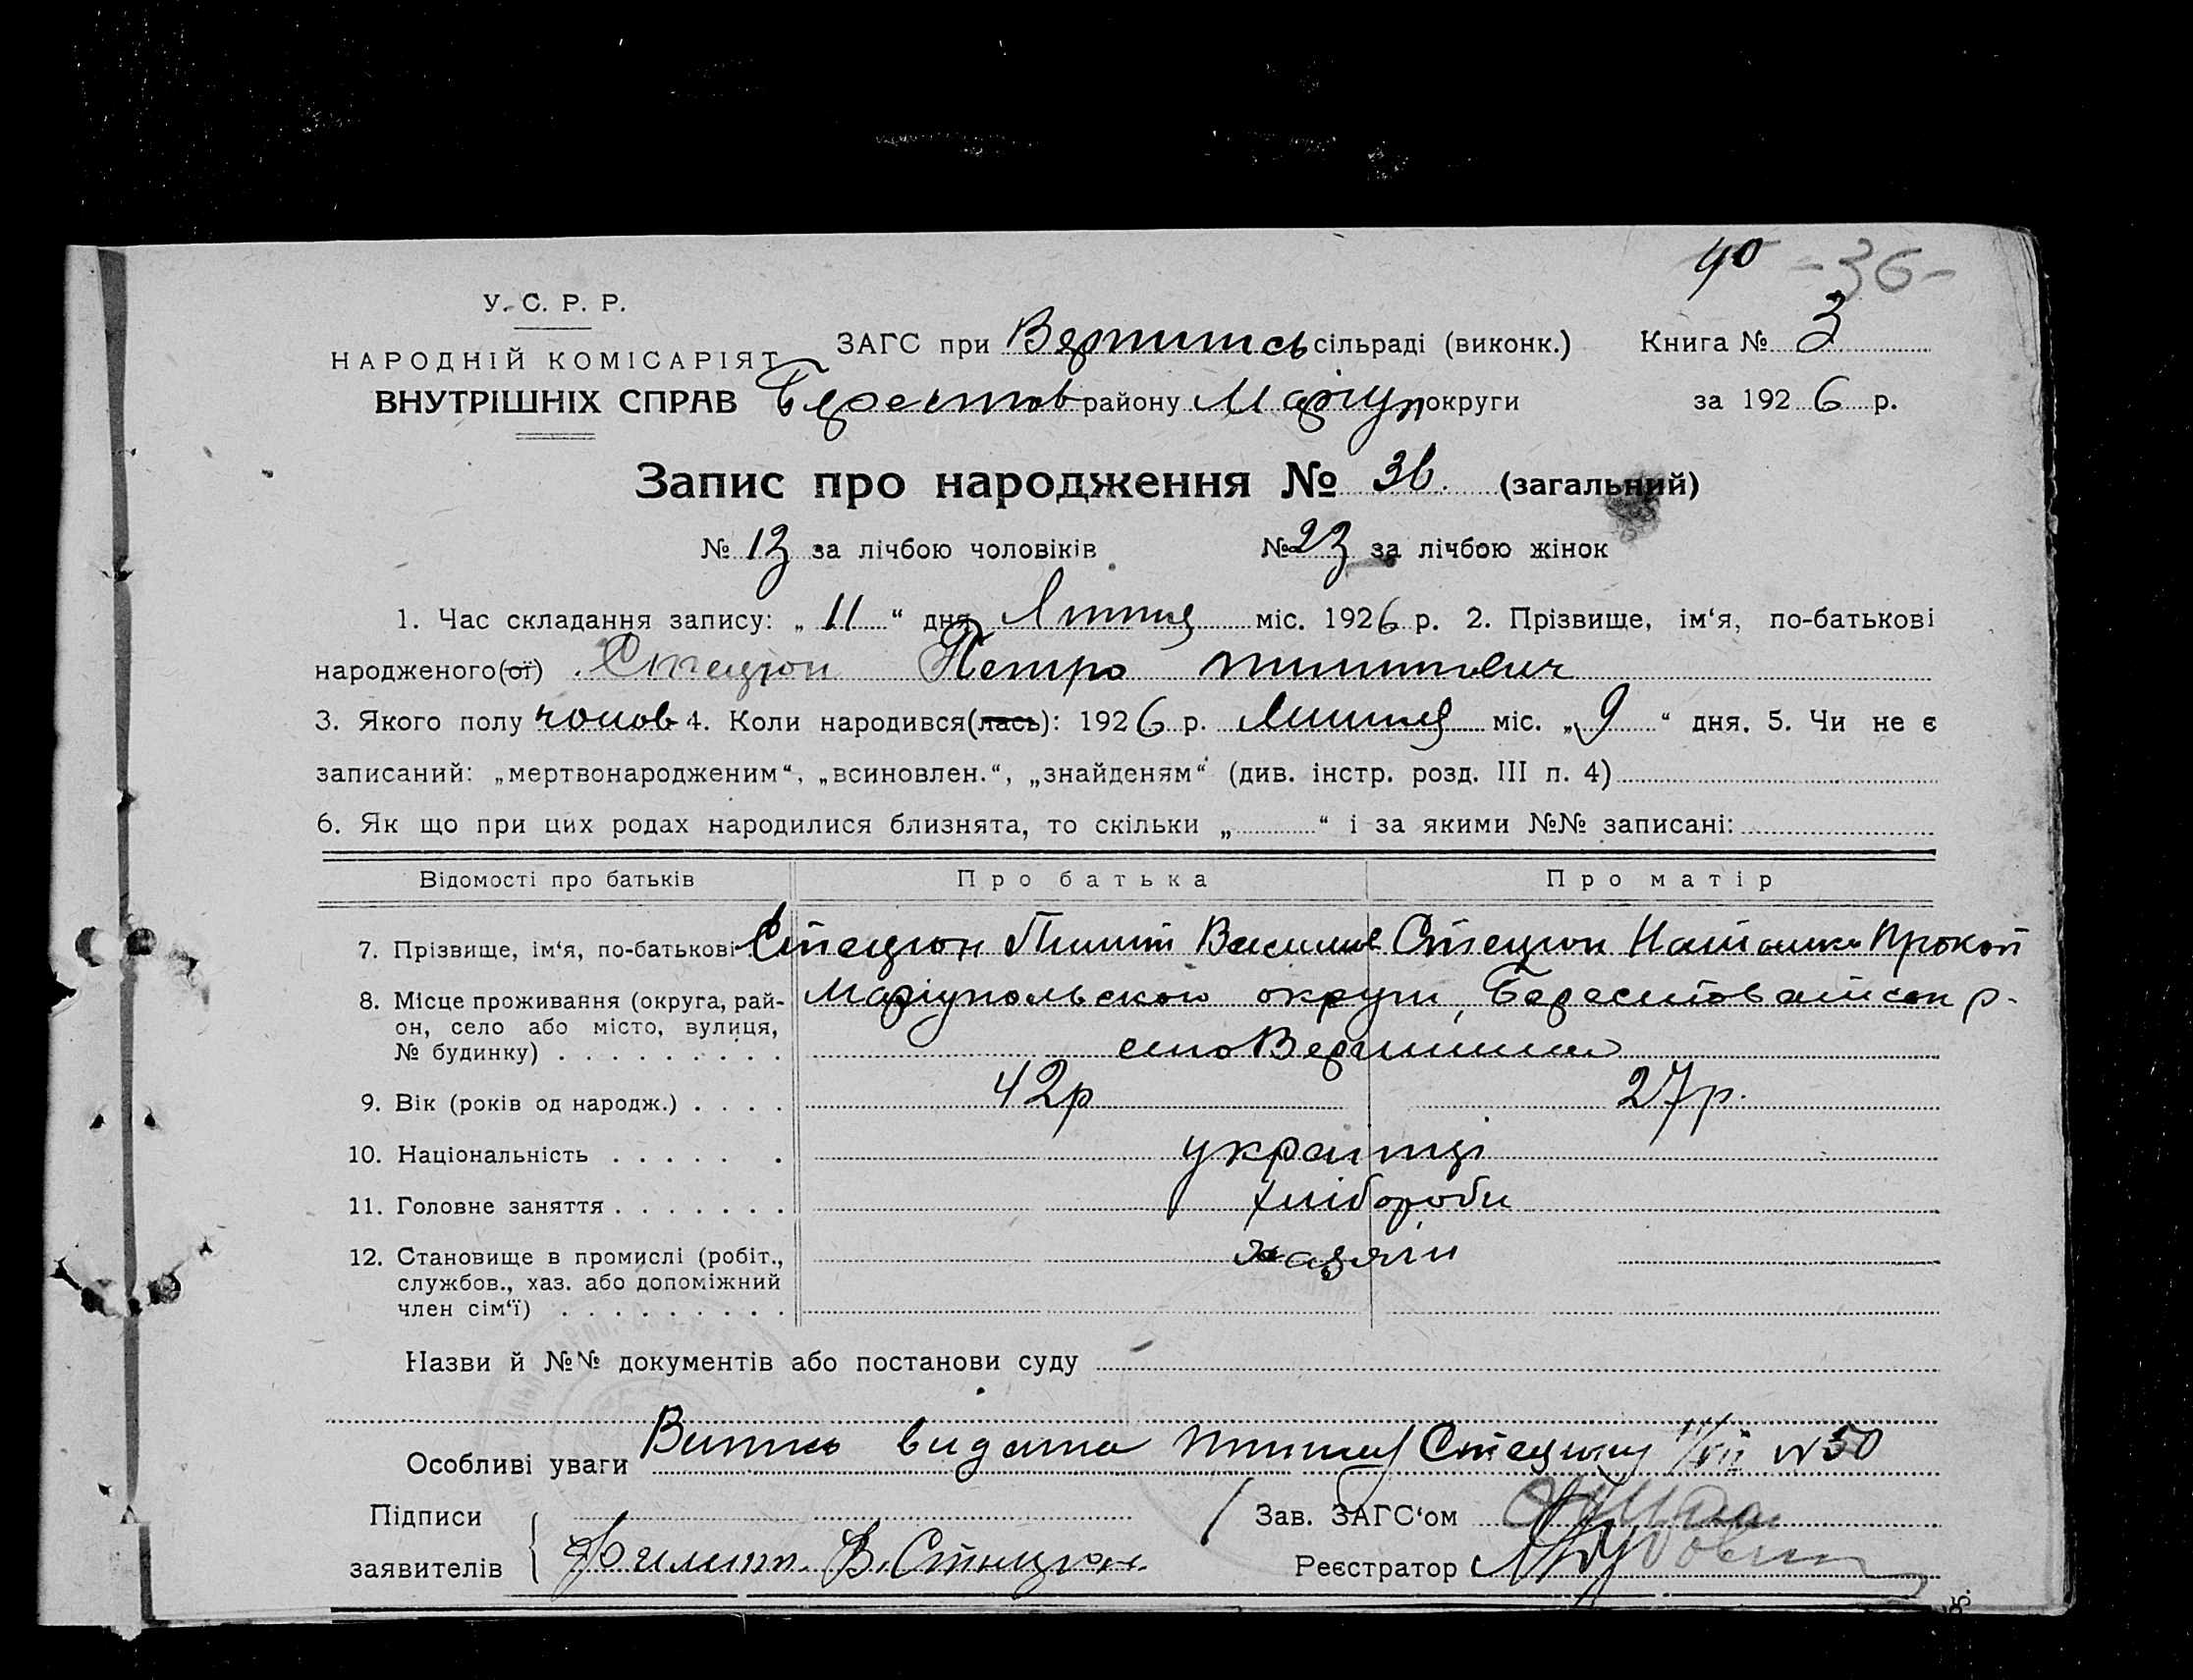 40 -36-
У. С. Р. Р.
НАРОДНІЙ КОМІСАРІЯТ
ВНУТРІШНІХ СПРАВ
ЗАГС при сільраді (виконк.) Книга № 3
Берестов району Маріуп округи за 1926 р.
Запис про народження № 36. (загальний)
№ 13 за лічбою чоловіків № 23 за лічбою жінок
1. Час складання запису: „ 11 “ дня Липня міс. 1926 р. 2. Прізвище, ім‘я, по-батькові
народженого(ої) Стецюн Петро Пилипович
3. Якого полу чолов 4. Коли народився(лась): 1926 р. Липня міс. „ 9 “ дня. 5. Чи не є
записаний: „мертвонародженим“, „всиновлен.“, „знайденям“ (див. інстр. розд. III п. 4)
6. Як що при цих родах народилися близнята, то скільки „ “ і за якими №№ записані:
Відомості про батьків Про батька Про матір
7. Прізвище, ім‘я, по-батькові Стецюн Пилип Василів Стецюн Наталка Прокоп
8. Місце проживання (округа, рай- Маріупольскої округи, р.
он, село або місто, вулиця,
№ будинку) село
9. Вік (років од народж.) 42р 27р.
10. Національність українці
11. Головне заняття хлібороби
12. Становище в промислі (робіт., хазяїн
службов., хаз. або допоміжний
член сім‘ї)
Назви й №№ документів або постанови суду
Особливі уваги видана Пилипу Стецюну 11/VII N 50
Підписи Зав. ЗАГС‘ом
заявителів Филип В. Стецюн Реєстратор